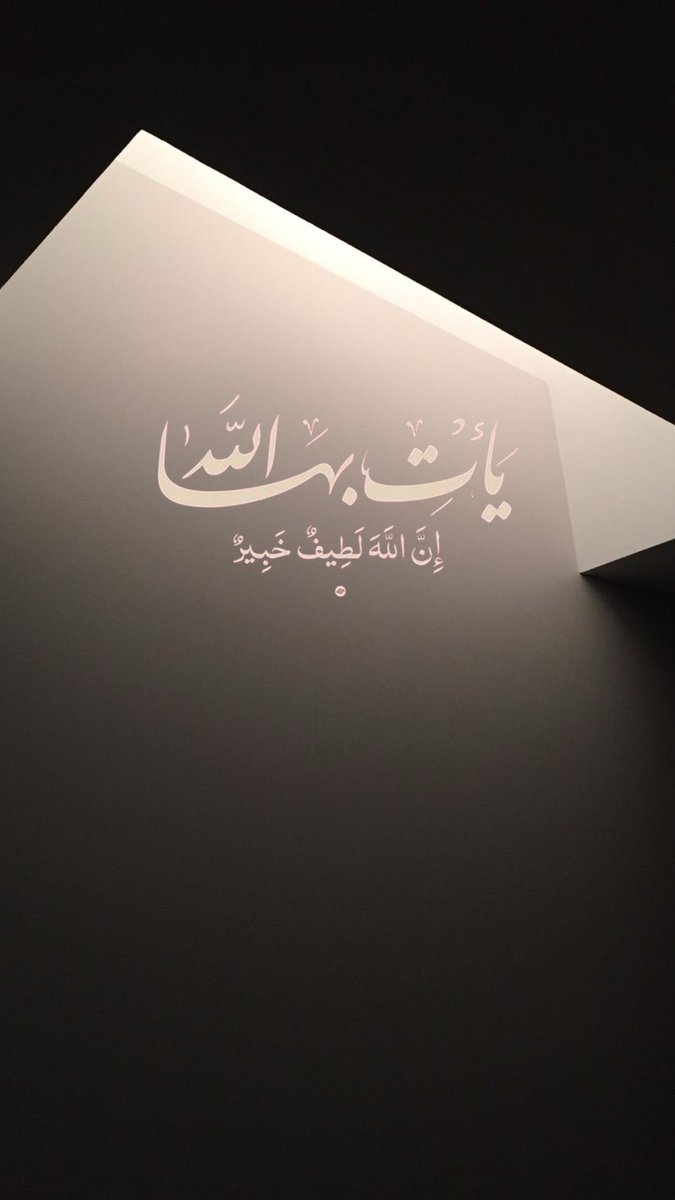 يَأْتِ بِهَا اللَّهُ
إِنَّ اللَّهَ لَطِيفٌ خَبِيرٌ